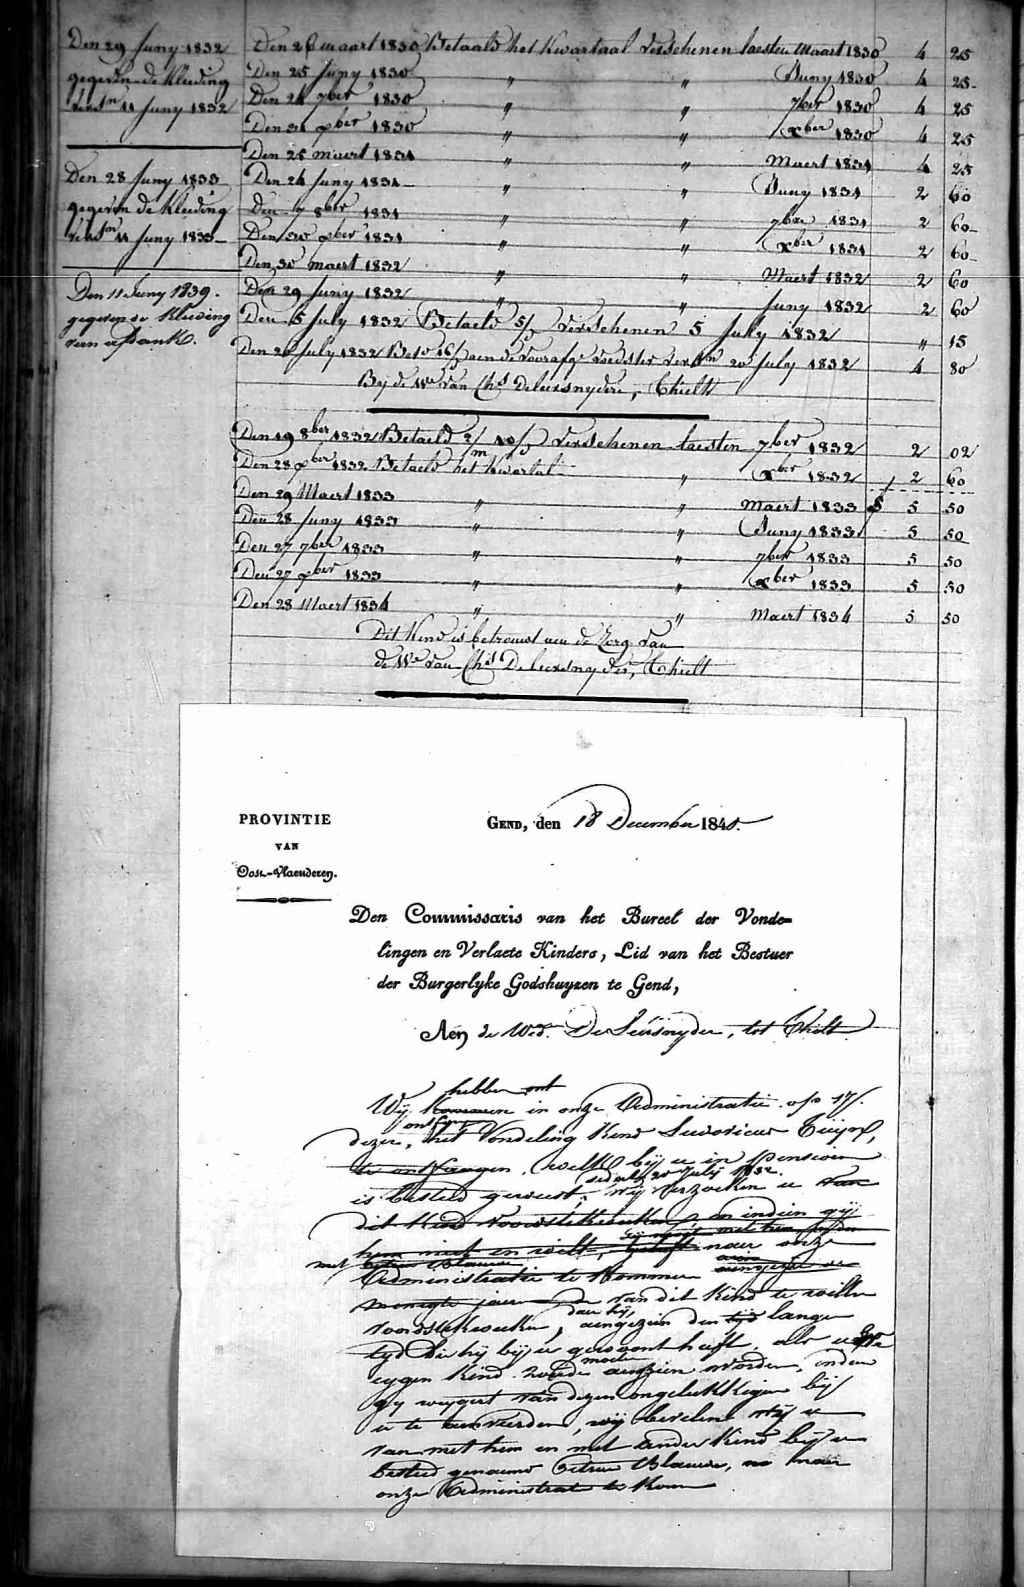 Den 29 Juny 1832
gegeven de Kleeding
versn 11 Juny 1832
Den 28 Juny 1833
gegeven de Kleeding
versn 11 Juny 1833
Den 11 Juny 1839.
gegeven de Kleeding
van afdank.
Den 26 maart 1830 Betaeld het Kwartaal verschenen laesten Maart 1830 4 25
Den 25 Juny 1830 " " Juny 1830 4 25
Den 24 7ber 1830 " " 7ber 1830 4 25
Den 31 xber 1830 " " xber 1830 4 25
Den 25 maert 1831 " " Maert 1831 4 25
Den 24 Juny 1831 " " Juny 1831 2 60
Den 7 8ber 1831 " " 7ber 1831 2 60
Den 30 xber 1831 " " xber 1831 2 60
Den 30 maert 1832 " " Maert 1832 2 60
Den 29 Juny 1832 " " Juny 1832 2 60
Den 5 July 1832 Betaeld 5/ verschenen 5 July 1832 " 15
Den 20 July 1832 Bet 16/ aen de voorafge voedster 20 July 1832 4 80
By de We van Chs Deleersnydere, Thielt
Den 19 8ber 1832 Betaeld 2/m 10/ verschenen laesten 7ber 1832 2 02
Den 28 xber 1832 Betaeld het Kwartal " xber 1832 2 60
Den 29 Maert 1833 " " Maert 1833 5 50
Den 28 Juny 1833 " " Juny 1833 5 50
Den 27 7ber 1833 " " 7ber 1833 5 50
Den 27 xber 1833 " " xber 1833 5 50
Den 28 Maert 1834 " " Maert 1834 5 50
Dit Kind is betrouwt aen de Zorg van
de We van Chs Deleersnyder, Thielt
PROVINTIE
VAN
Oost-Vlaenderen.
GEND, den 18 December 1840.
Den Commissaris van het Bureel der Vonde-
lingen en Verlaete Kinders, Lid van het Bestuer
der Burgerlyke Godshuyzen te Gend,
Aen de Wed. De Leersnyder, tot Thielt
hebben ont
Wij Komen in onze Administratie op 17/
dezer, het Vondeling Kind
te ontfangen, welk bij u in pensioen
sedert 20 July 1832.
is besteed geweest, wij verzoeken u van
dit Kind voordstekweeken, en indien gij
hem niet en wilt, naer onze
met Blauwe
Administratie te Kommen
menigte jaer van dit Kind te willen
daer hij
voordstekweeken, aengezien den tyd lange
tyd die hij bij u gewoont heeft, als u
moeten
eygen Kind zoude aenzien worden, indien
gy weygert van dezen ongelukkigen bij
u te aenveerden, wij bevelen u
van met hem en met ander Kind bij u
besteed genaemd Blauwe, naer
onze Administratie te Komen